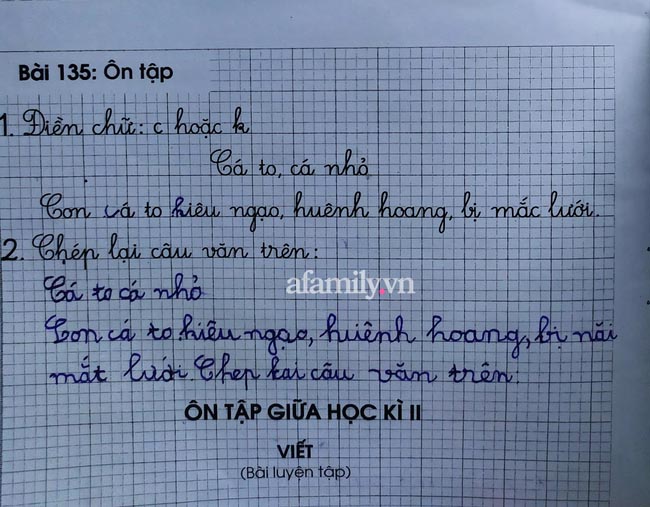 Bài 135: Ôn tập
1. Điền chữ: c hoặc k
Cá to, cá nhỏ
Con cá to kiêu ngạo, huênh hoang, bị mắc lưới.
2. Chép lại câu văn trên:
Cá to cá nhỏ
afamily.vn
Con cá to kiêu ngạo, huênh hoang, bị năi
mắt lưới. Chep kai câu văn trên:
ÔN TẬP GIỮA HỌC KÌ II
VIẾT
(Bài luyện tập)